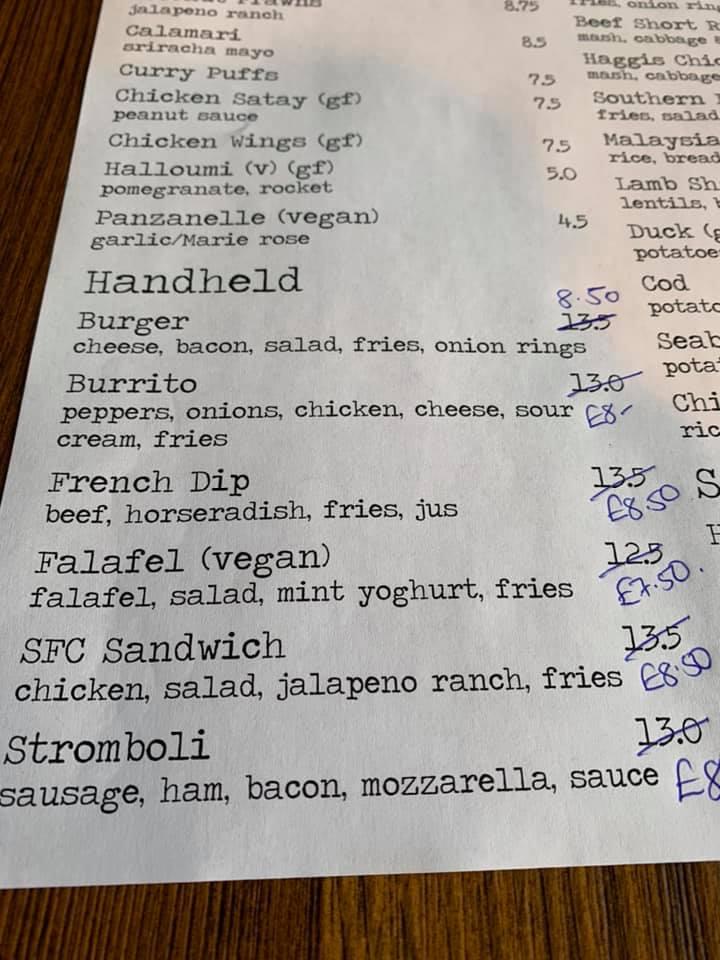 jalapeno ranch 8.75
Calamari
sriracha mayo 8.5
Curry Puffs 7.5
Chicken Satay (gf) 7.5
peanut sauce
Chicken Wings (gf) 7.5
Halloumi (v) (gf) 5.0
pomegranate, rocket
Panzanelle (vegan) 4.5
garlic/Marie rose
Handheld
8.50
Burger 13.5
cheese, bacon, salad, fries, onion rings
Burrito 13.0
peppers, onions, chicken, cheese, sour £8-
cream, fries
French Dip 13.5
beef, horseradish, fries, jus £8.50
Falafel (vegan) 12.5
falafel, salad, mint yoghurt, fries £7.50.
SFC Sandwich 13.5
chicken, salad, jalapeno ranch, fries £8.50
Stromboli 13.0
sausage, ham, bacon, mozzarella, sauce £8
fries, onion
Beef Short
mash, cabbage
Haggis
mash, cabbage
Southern
fries, salad
Malaysia
rice, bread
Lamb
lentils,
Duck
Cod